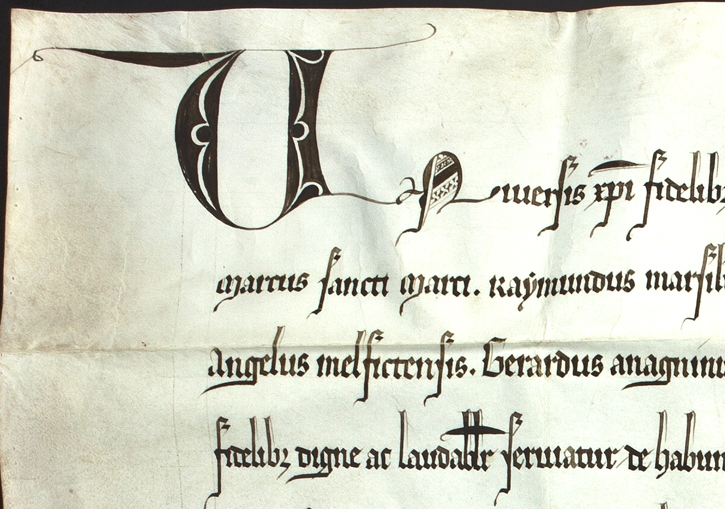 Uniuersis xpi fidelibꝫ
Marcus sancti Marci. Raymundus
Angelus melfictensis. Gerardus
fidelibꝫ digne ac laudablr seruiatur de